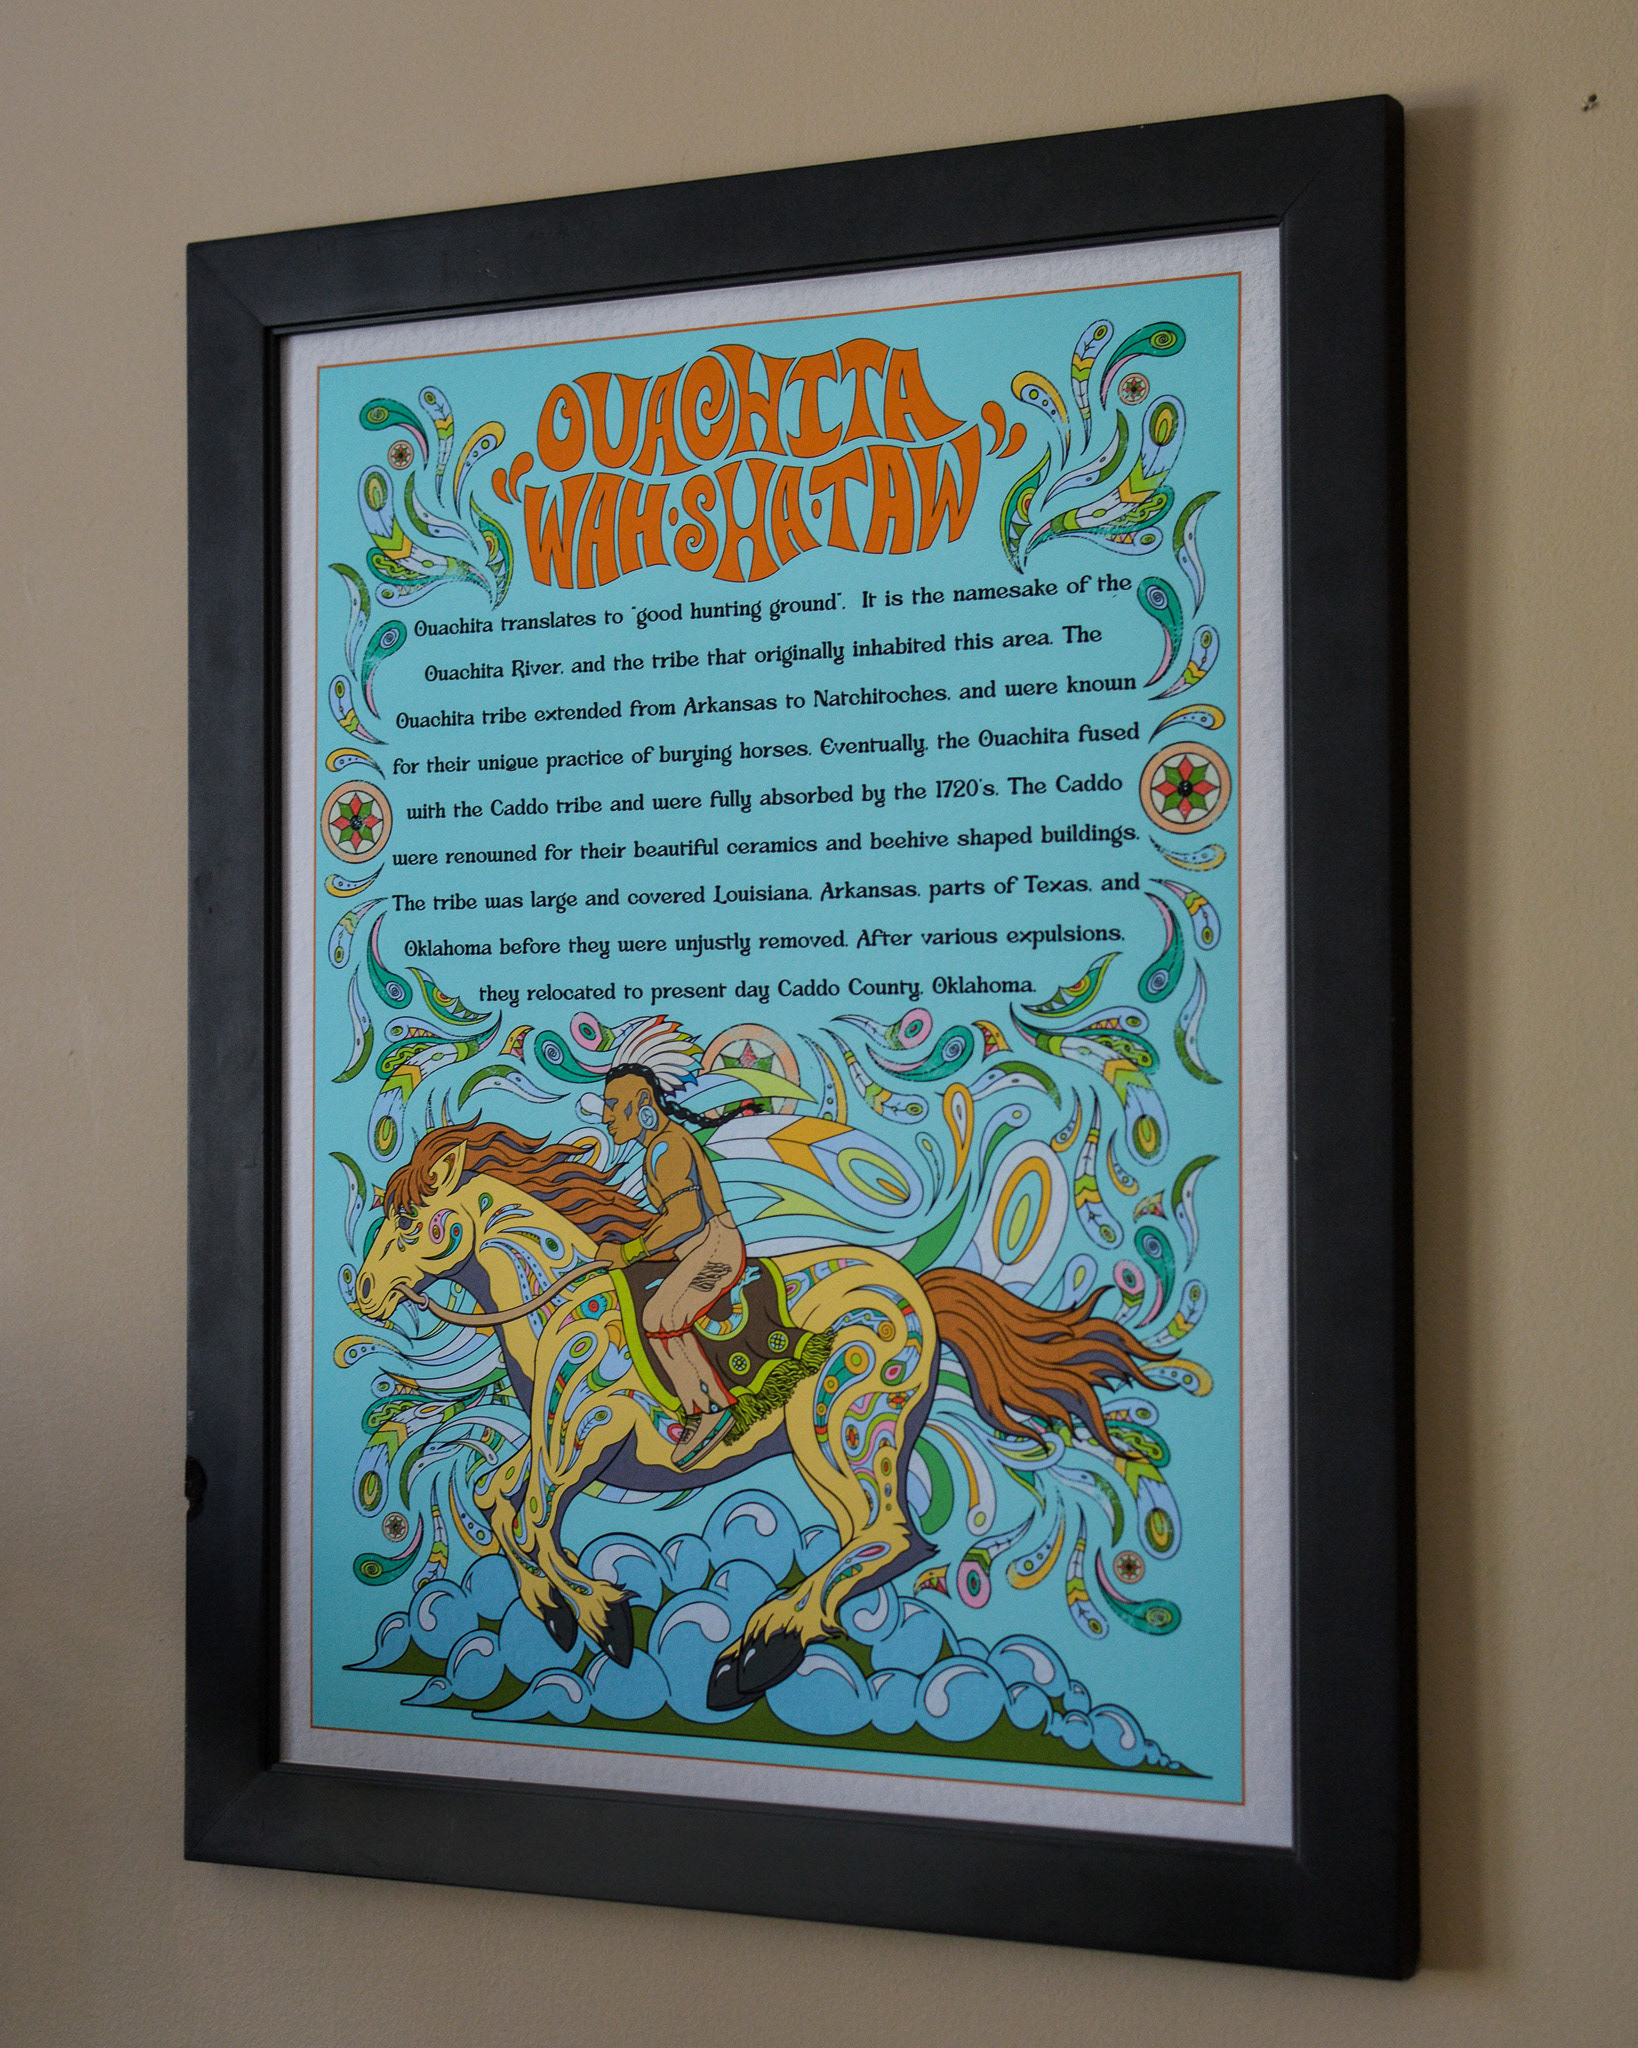 OUACHITA
"WAH·SHA·TAW"
Ouachita translates to "good hunting ground". It is the namesake of the
Ouachita River, and the tribe that originally inhabited this area. The
Ouachita tribe extended from Arkansas to Natchitoches, and were known
for their unique practice of burying horses. Eventually, the Ouachita fused
with the Caddo tribe and were fully absorbed by the 1720's. The Caddo
were renowned for their beautiful ceramics and beehive shaped buildings.
The tribe was large and covered Louisiana, Arkansas, parts of Texas, and
Oklahoma before they were unjustly removed. After various expulsions,
they relocated to present day Caddo County, Oklahoma.